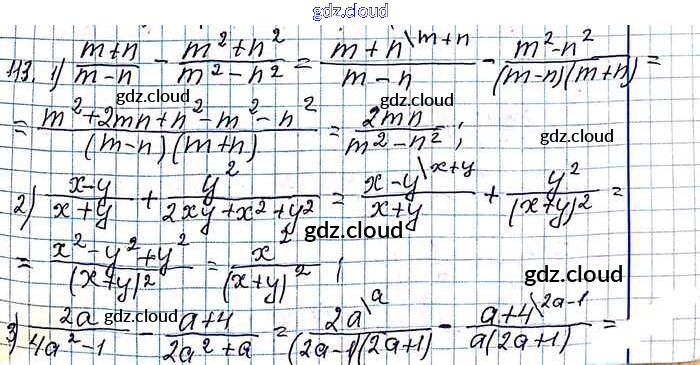 gdz.cloud
113. 1) (m+n)/(m-n) - (m²+n²)/(m²-n²) = (m+n\m+n)/(m-n) - (m²-n²)/((m-n)(m+n)) =
gdz.cloud gdz.cloud
= (m²+2mn+n²-m²-n²)/((m-n)(m+n)) = 2mn/(m²-n²);
gdz.cloud gdz.cloud gdz.cloud
2) (x-y)/(x+y) + y²/(2xy+x²+y²) = (x-y\x+y)/(x+y) + y²/(x+y)² =
gdz.cloud
= (x²-y²+y²)/(x+y)² = x²/(x+y)²;
gdz.cloud
3) 2a/(4a²-1) - (a+4)/(2a²+a) = (2a\a)/((2a-1)(2a+1)) - (a+4\2a-1)/(a(2a+1)) =
gdz.cloud gdz.cloud